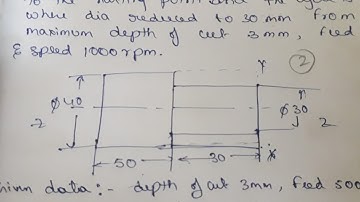 where dia reduced to 30 mm from
maximum depth of cut 3mm, feed
& speed 1000 rpm.
2
Y
φ40
φ30
Z
Z
X
50
30
data:- depth of cut 3mm, Feed 500